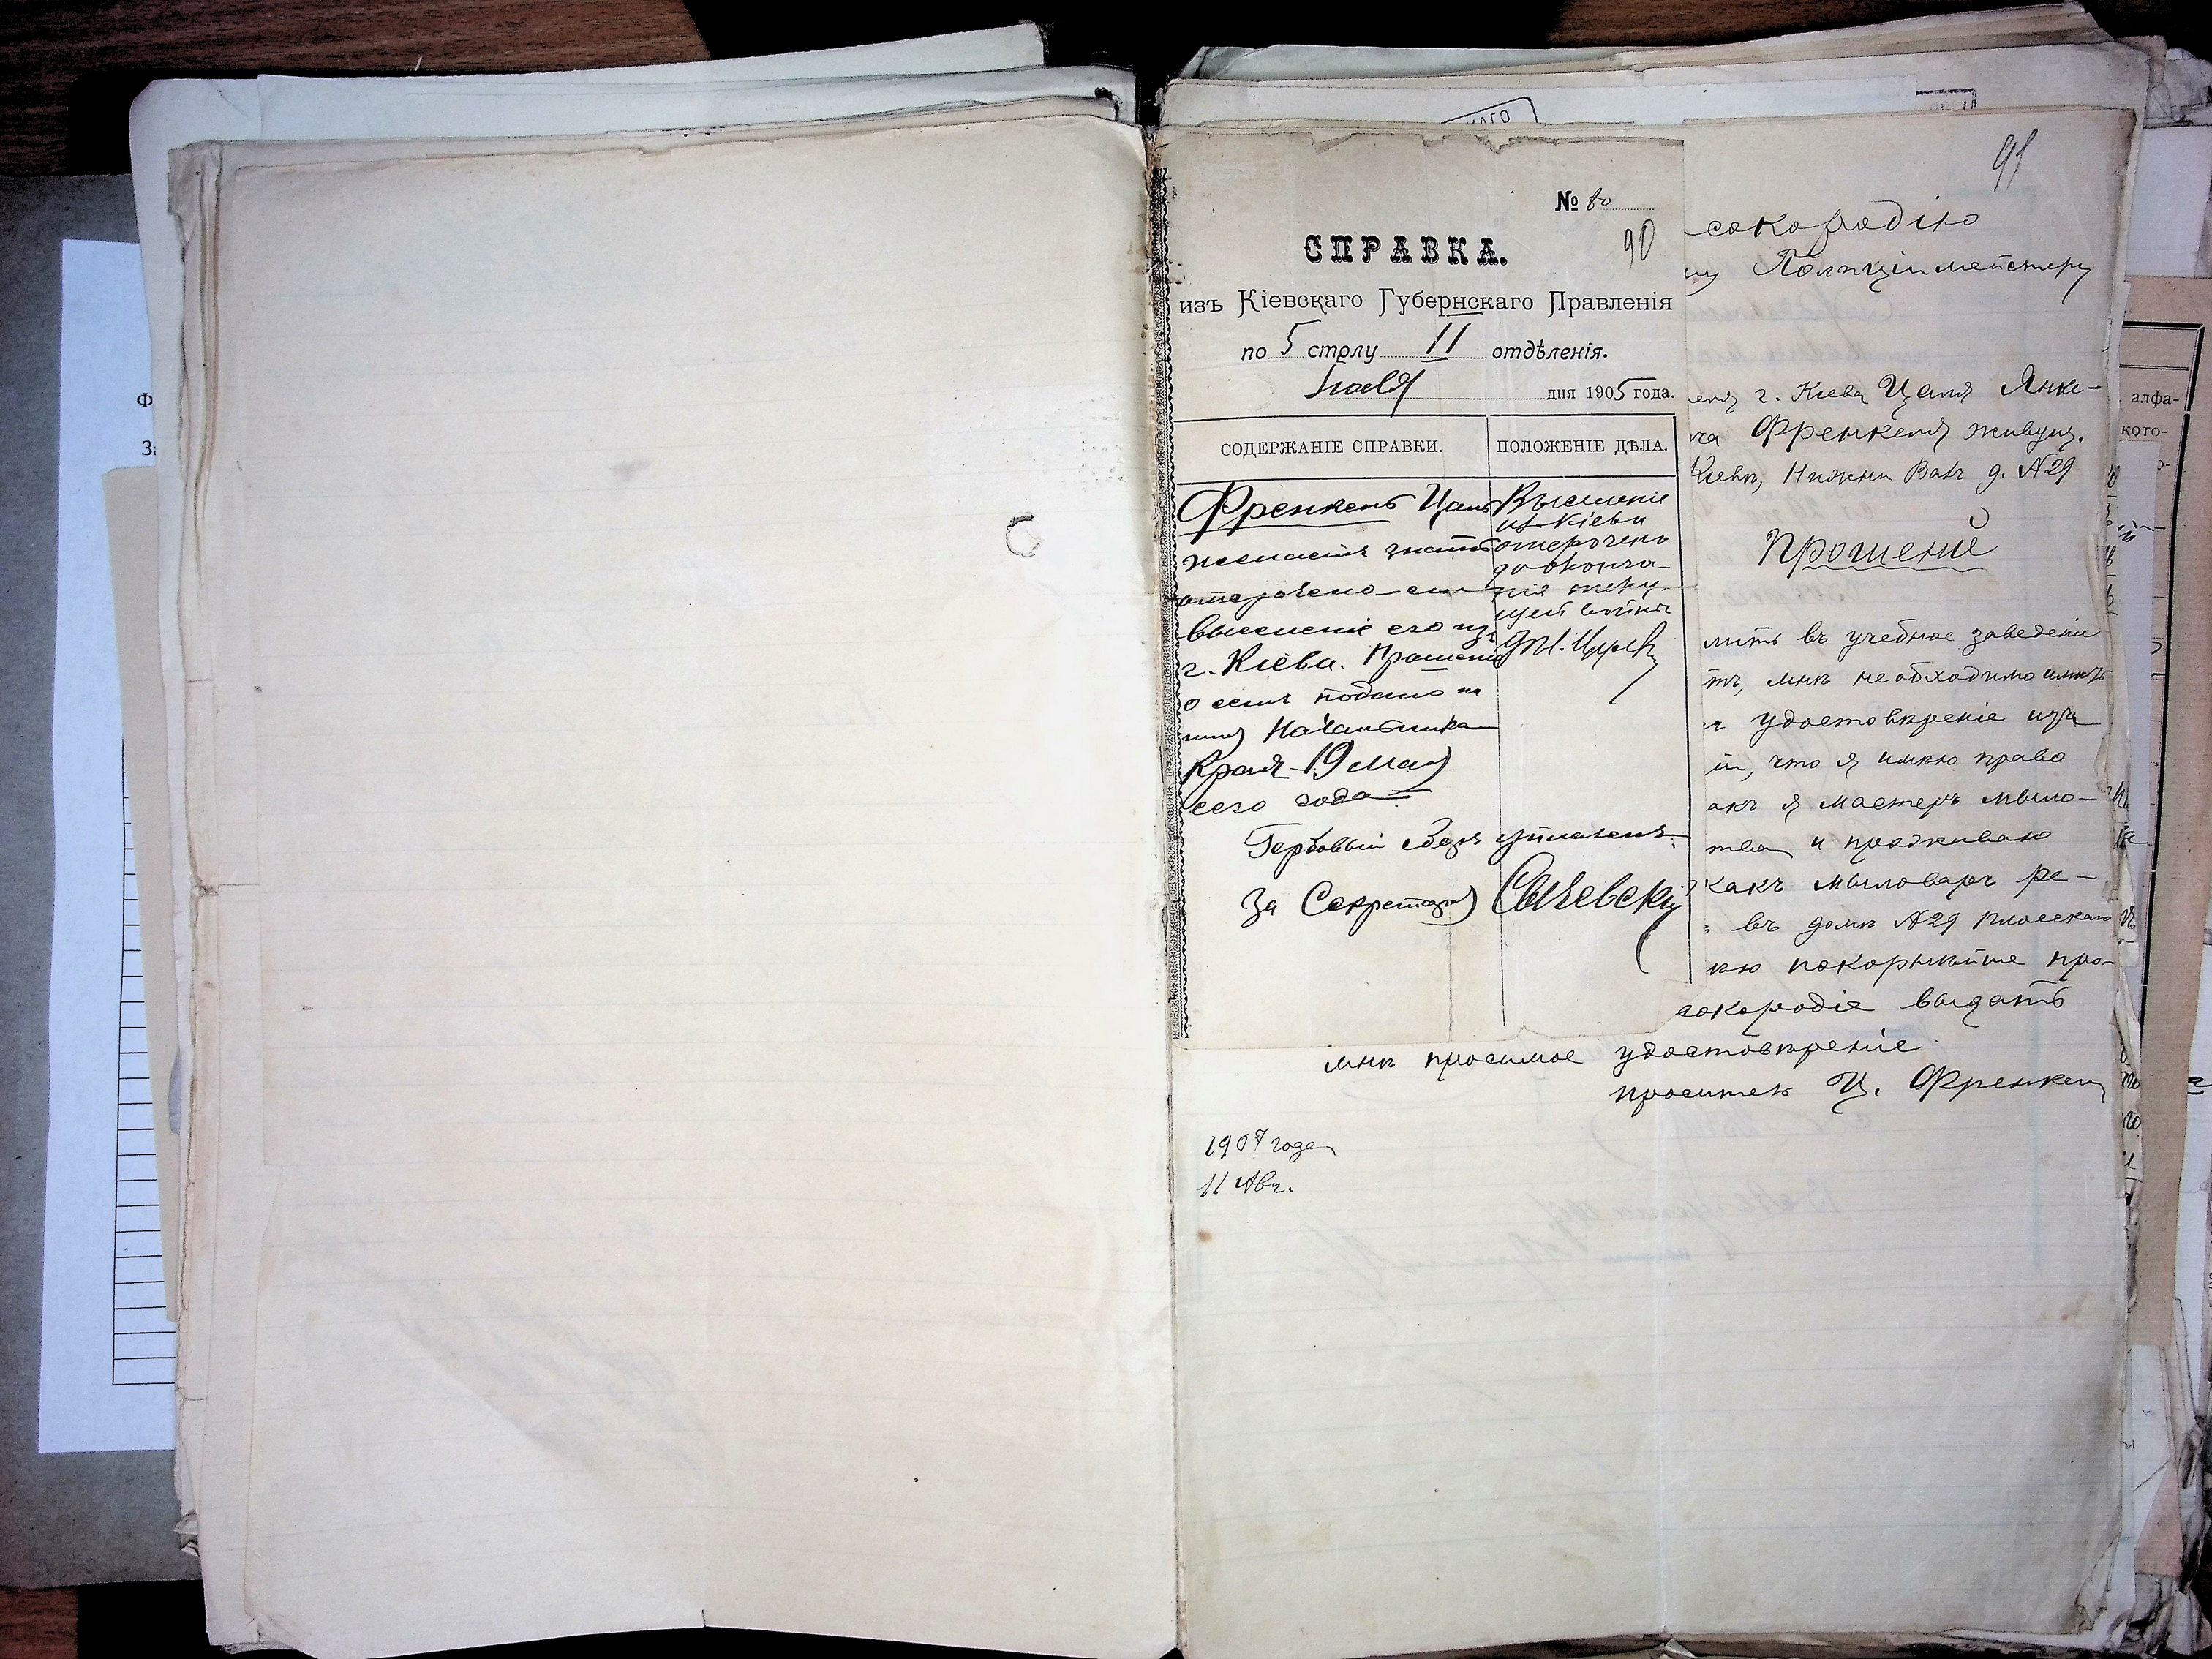 № 80
90
СПРАВКА.
изъ Кіевскаго Губернскаго Правленія
по 5 столу II отдѣленія.
дня 1905 года.
СОДЕРЖАНІЕ СПРАВКИ.
Френкель Цаль
желаетъ знать
отсрочено ли
выселеніе его изъ
г. Кіева. Прошеніе
о семъ подано на
имя Начальника
Края 19 мая
сего года
ПОЛОЖЕНІЕ ДѢЛА.
Выселеніе
из Кіева
отсрочено
до оконча-
нія теку-
щей войны
Гербовый сборъ уплаченъ.
За Секретаря
91
сокородію
Полицiймейстеру
г. Кіева Цаля Янке-
ча Френкеля живущ.
Кіевѣ, Нижни Валъ д. №29
Прошеніе
въ учебное заведеніе
тъ, мнѣ необходимо имѣть
удостовѣреніе изъ
iи, что я имѣю право
акъ я мастеръ мыло-
тва и проживаю
какъ мыловаръ ре-
въ домѣ №29
ѣю покорнѣйше про-
сокородіе выдать
мнѣ просимое удостовѣреніе
проситель Ц. Френкель
1907 года
11 Авг.
алфа-
кото-
КАГО
Ф
За